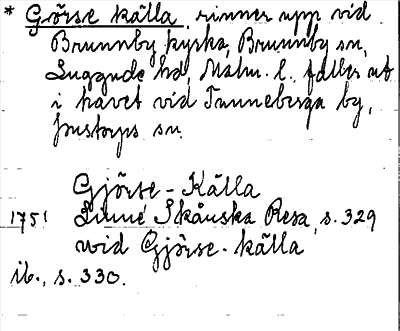 * Görse källa, rinner upp vid
Brunnby kyrka, Brunnby sn,
Luggude hd, Malm. l. faller ut
i havet vid Tunneberga by,
Jonstorps sn.
Gjörse-Källa
1751 Linné Skånska Resa, s. 329
wid Gjörse-källa
ib., s. 330.